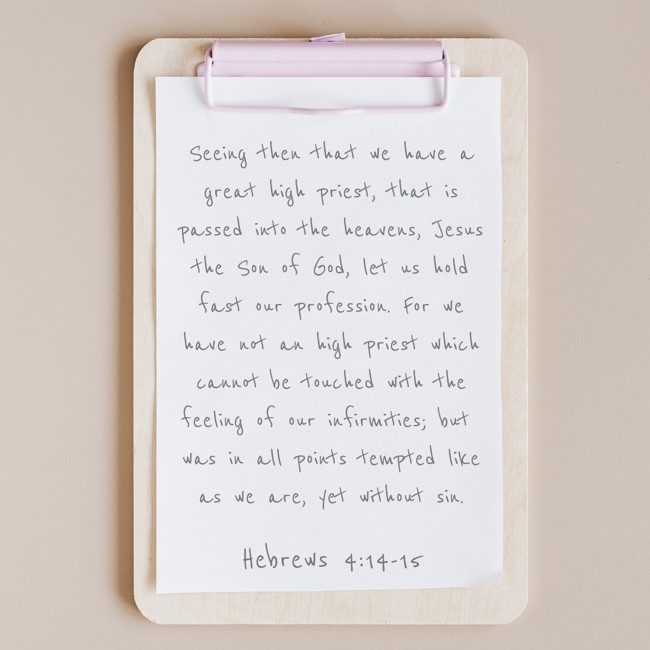 Seeing then that we have a
great high priest, that is
passed into the heavens, Jesus
the Son of God, let us hold
fast our profession. For we
have not an high priest which
cannot be touched with the
feeling of our infirmities; but
was in all points tempted like
as we are, yet without sin.
Hebrews 4:14-15